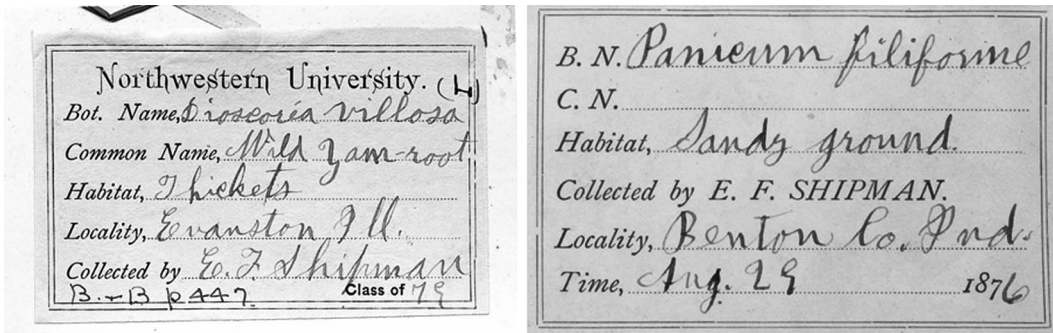 Northwestern University. (L)
Bot. Name, Dioscoria villosa
Common Name, Wild Yam-root
Habitat, Thickets
Locality, Evanston Ill.
Collected by E. F. Shipman
B. & B p 447. Class of 79
B. N. Panicum filiforme
C. N.
Habitat, Sandy ground.
Collected by E. F. SHIPMAN.
Locality, Benton Co. Ind.
Time, Aug. 29 1876